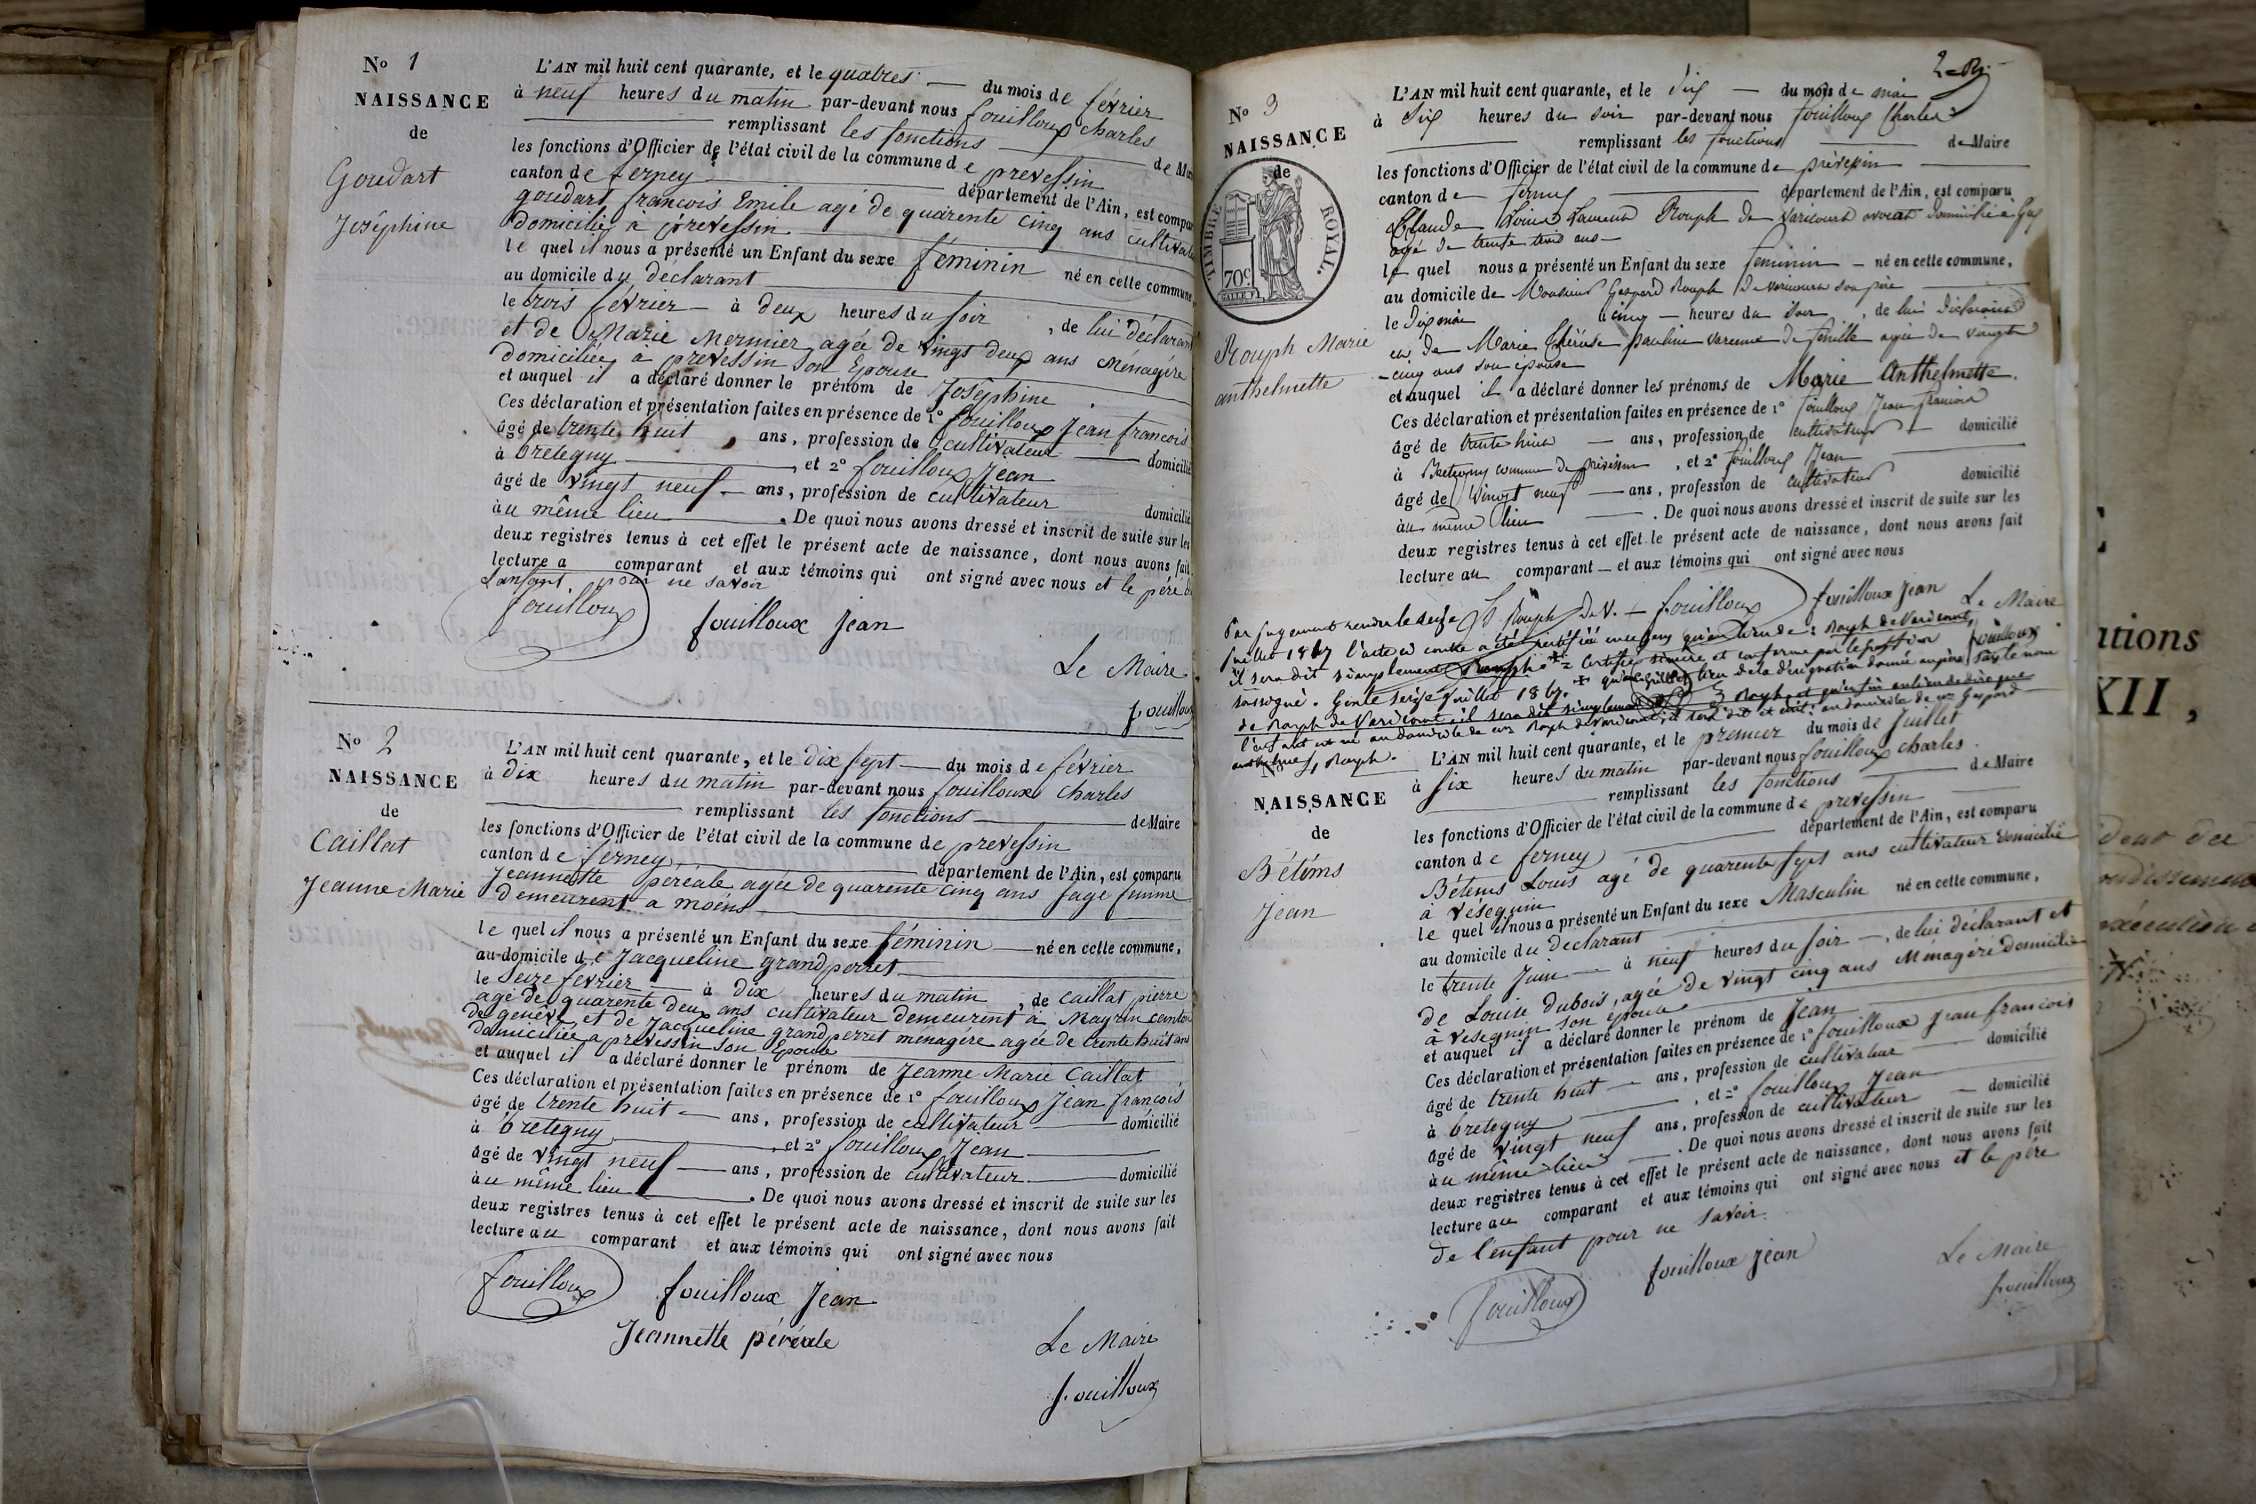 No 1
NAISSANCE
de
Goudart
Joséphine
L'AN mil huit cent quarante, et le quatres — du mois de février
à neuf heures du matin par-devant nous fouilloux Charles
remplissant les fonctions — de Mai
les fonctions d'Officier de l'état civil de la commune de prevessin
canton de ferney — département de l'Ain, est compar
goudart françois Emile agé de quarente cinq ans cultivate
Domicilié à prevessin
le quel il nous a présenté un Enfant du sexe féminin né en cette commune
au domicile du déclarant
le trois février — à deux heures du soir, de lui déclarant
et de Marie Mermier agée de vingt deux ans Ménagère
domiciliée à prevessin son Epouse
et auquel il a déclaré donner le prénom de Joséphine
Ces déclaration et présentation faites en présence de 1° fouilloux Jean françois
âgé de trente huit ans, profession de cultivateur — domicilié
à bretegny —, et 2° fouilloux Jean
âgé de vingt neuf — ans, profession de cultivateur domicilié
àu même lieu —. De quoi nous avons dressé et inscrit de suite sur les
deux registres tenus à cet effet le présent acte de naissance, dont nous avons fait
lecture a comparant et aux témoins qui ont signé avec nous et le père de
Lanfant pour ne savoir
fouilloux fouilloux Jean
Le Maire
fouilloux
No 2
NAISSANCE
de
Caillat
Jeanne Marie
L'AN mil huit cent quarante, et le dix sept — du mois de février
à dix heures du matin par-devant nous fouilloux Charles
remplissant les fonctions — de Maire
les fonctions d'Officier de l'état civil de la commune de prevessin
canton de ferney — département de l'Ain, est comparu
Jeannette péréale agée de quarente cinq ans sage femme
demeurent a moëns
le quel il nous a présenté un Enfant du sexe féminin — né en cette commune,
au domicile de Jacqueline grandperret
le seize février — à dix heures du matin, de Caillat pierre
agé de quarente deux ans cultivateur demeurent à Mayrin canton
de genève et de Jacqueline grandperret ménagère agée de trente huit ans
domiciliée a prevessin son Epouse
et auquel il a déclaré donner le prénom de Jeanne Marie Caillat
Ces déclaration et présentation faites en présence de 1° fouilloux Jean françois
âgé de trente huit — ans, profession de cultivateur — domicilié
à bretegny —, et 2° fouilloux Jean
âgé de vingt neuf — ans, profession de cultivateur — domicilié
àu même lieu —. De quoi nous avons dressé et inscrit de suite sur les
deux registres tenus à cet effet le présent acte de naissance, dont nous avons fait
lecture au comparant et aux témoins qui ont signé avec nous
fouilloux fouilloux Jean
Jeannette péréale
Le Maire
fouilloux
No 3
NAISSANCE
de
TIMBRE ROYAL.
70c.
Rouph Marie
anthelmette
L'AN mil huit cent quarante, et le dix — du mois de mai
à Six heures du soir par-devant nous fouilloux Charles
remplissant les fonctions — de Maire
les fonctions d'Officier de l'état civil de la commune de prévessin
canton de ferney — département de l'Ain, est comparu
Claude Louis Laurent Rouph de Varicourt avocat domicilié à Gex
agé de trente trois ans —
le quel nous a présenté un Enfant du sexe feminin — né en cette commune,
au domicile de Monsieur Gaspard Rouph de Varicourt son père
le dix mai à cinq — heures du soir, de lui déclarant
et de Marie Thérèse pauline varenne de fenille agée de vingt
-cinq ans son épouse
et auquel il a déclaré donner les prénoms de Marie Anthelmette.
Ces déclaration et présentation faites en présence de 1° fouilloux Jean françois
âgé de trente huit — ans, profession de cultivateur — domicilié
à Bretegny commune de prévessin, et 2° fouilloux Jean
âgé de Vingt neuf — ans, profession de cultivateur domicilié
àu même lieu —. De quoi nous avons dressé et inscrit de suite sur les
deux registres tenus à cet effet le présent acte de naissance, dont nous avons fait
lecture au comparant — et aux témoins qui ont signé avec nous
Rouph de V. — fouilloux fouilloux Jean Le Maire
fouilloux
Par jugement rendu le seize
Juillet 1867 l'acte ci contre a été rectifié en ce sens qu'au lieu de: Rouph de Varicourt,
il sera dit simplement Rouph. Certifié sincère et conforme par le greffier
soussigné. Juillet 1867. lieu de la désignation donnée au père
de Rouph de Varicourt, il sera dit simplement Rouph, et qu'enfin au lieu de dire que
l'enfant est né au domicile de Mr Rouph de Varicourt, il sera dit au domicile de Mr Gaspard
Rouph.
NAISSANCE
de
Bétems
Jean
L'AN mil huit cent quarante, et le premier du mois de Juillet
à six heures du matin par-devant nous fouilloux Charles.
remplissant les fonctions — de Maire
les fonctions d'Officier de l'état civil de la commune de prevessin
canton de ferney — département de l'Ain, est comparu
Bétems Louis agé de quarente sept ans cultivateur domicilié
à vésegnin
le quel il nous a présenté un Enfant du sexe Masculin né en cette commune,
au domicile du déclarant
le trente Juin — à neuf heures du soir —, de lui déclarant et
de Louise Dubois, agée de vingt cinq ans Ménagère domicilié
à vesegnin son épouse
et auquel il a déclaré donner le prénom de Jean
Ces déclaration et présentation faites en présence de 1° fouilloux Jean françois
âgé de trente huit — ans, profession de cultivateur — domicilié
à bretegny —, et 2° fouilloux Jean
âgé de vingt neuf ans, profession de cultivateur — domicilié
àu même lieu —. De quoi nous avons dressé et inscrit de suite sur les
deux registres tenus à cet effet le présent acte de naissance, dont nous avons fait
lecture au comparant et aux témoins qui ont signé avec nous et le père
de l'enfant pour ne savoir.
fouilloux fouilloux Jean
Le Maire
fouilloux
XII,